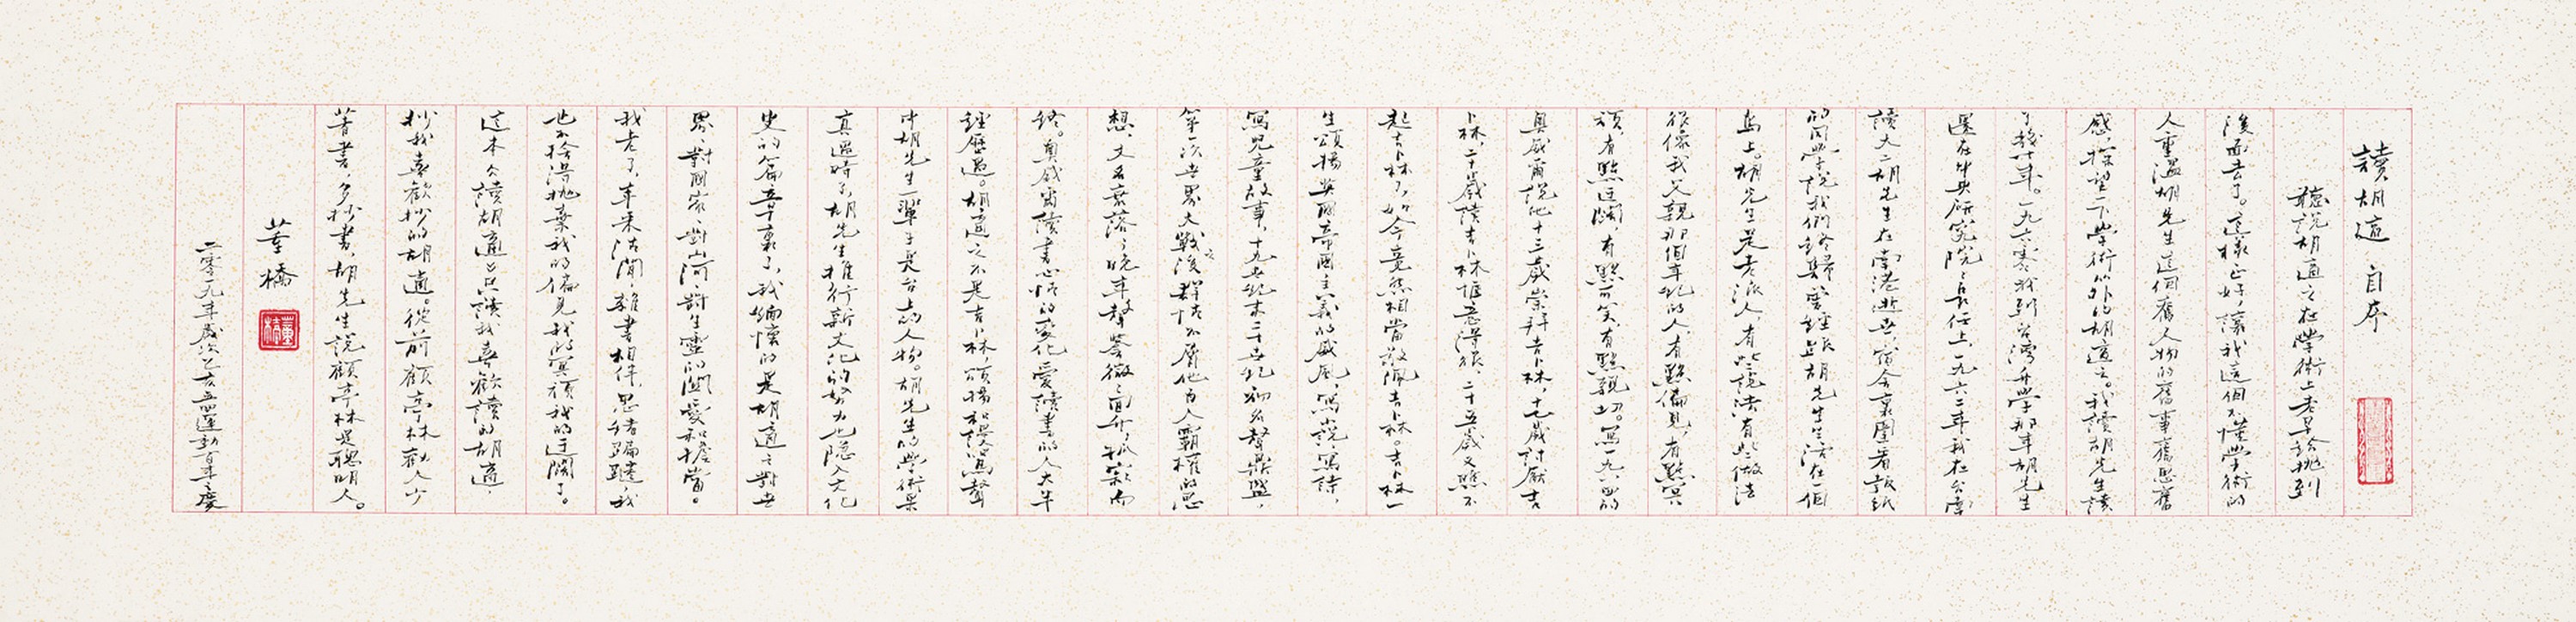 讀胡適 自序
聽說胡適之在學術上老早給拋到
後面去了。這樣正好，讓我這個不懂學術的
人重溫胡先生這個舊人物的舊事舊思舊
感，探望一下學術以外的胡適之。我讀胡先生讀
了幾十年。一九六零我到台灣升學那年胡先生
還在中央研究院院長任上，一九六二年我在台南
讀大二胡先生在南港逝世，宿舍裏圍着報紙
的同學說我們終歸曾經跟胡先生生活在一個
島上。胡先生是老派人，有些說法有些做法
很像我父親那個年紀的人，有點偏見，有點冥
頑，有點迂闊，有點可笑，有點親切。寫一九八四的
奧威爾說他十三歲崇拜吉卜林，十七歲討厭吉
卜林，二十歲讀吉卜林愜意得很，二十五歲又瞧不
起吉卜林了，如今竟然相當敬佩吉卜林。吉卜林一
生頌揚英國帝國主義的威風，寫小說，寫詩，
寫兒童故事，十九世紀末二十世紀初名聲鼎盛，
第一次世界大戰之後群情不屑他為人霸權的思
想，文名衰落，晚年聲譽微，消沉孤寂而
終。奧威爾讀書心情的變化愛讀書的人大半
經歷過。胡適之不是吉卜林，頌揚和譏諷聲
中胡先生一輩子是台上的人物。胡先生的學術果
真過時了，胡先生推行新文化的努力也隱入文化
史的篇章裏了，我緬懷的是胡適之對世
界、對國家、對山河、對生靈的關愛和擔當。
我老了，年來沽閒，雜書相伴，思緒蹁躚，我
也不捨得拋棄我的偏見我的冥頑我的迂闊了。
這本今讀胡適之只讀我喜歡讀的胡適
抄我喜歡抄的胡適。從前顧亭林勸人少
著書，多抄書，胡先生說顧亭林是聰明人。
董橋
董橋
二零一九年歲次己亥五四運動百年之慶